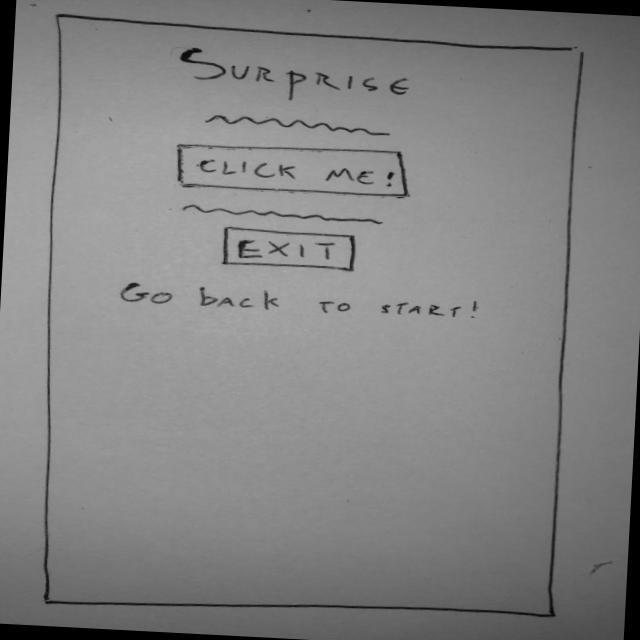 SURPRISE
CLICK ME!
EXIT
Go back to START!